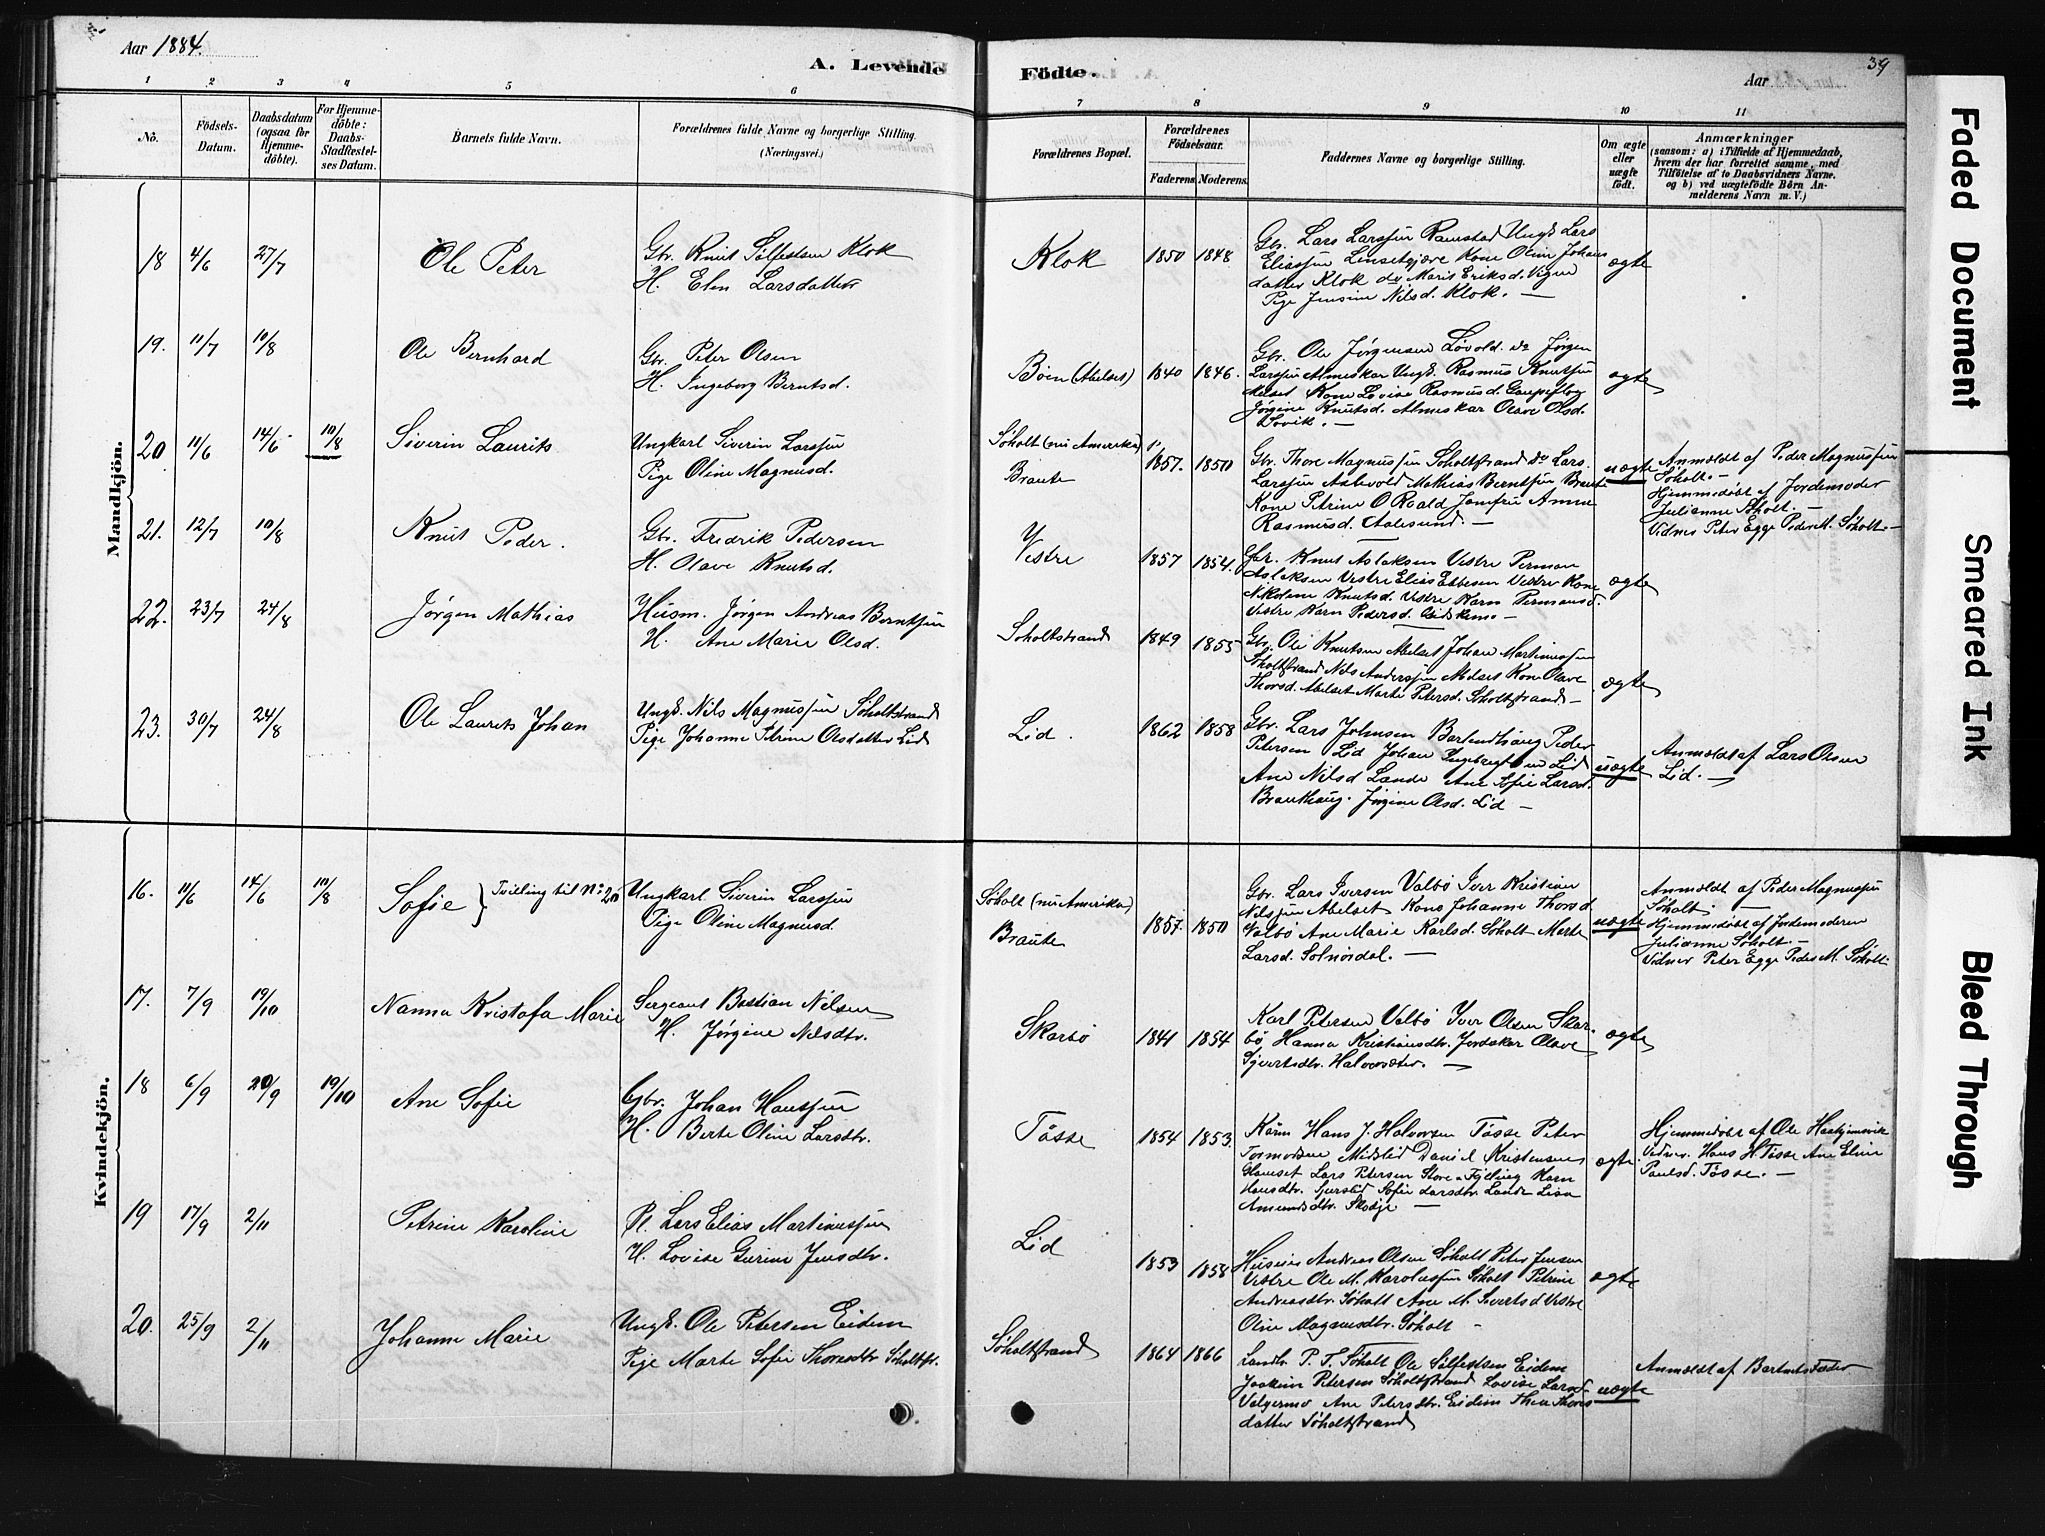 Aar 1884.
A. Levende
Födte.
Aar
39
1 2 3 4 5 6 7 8 9 10 11
No.
Födsels-
Datum.
Daabsdatum
(ogsaa for
Hjemme-
döbte).
For Hjemme-
döbte:
Daabs-
Stadfæstel-
ses Datum.
Barnets fulde Navn.
Forældrenes fulde Navne og borgerlige Stilling.
(Næringsvei.)
Forældrenes Bopæl.
Forældrenes
Födselsaar.
Faderens. Moderens.
Faddernes Navne og borgerlige Stilling.
Om ægte
eller
uægte
födt.
Anmærkninger
(saasom: a) i Tilfælde af Hjemmedaab,
hvem der har forrettet samme, med
Tilföielse af to Daabsvidners Navne.
og b) ved uægtefödte Börn An-
melderens Navn m. V.)
Mandkjön.
18 4/6 27/7 Ole Peter
Gbr. Knut Sølfestsen Klok
H. Elen Larsdatter
Klok 1850 1848
Gbr. Lars Larssen Ramstad Ungk Lars
Eliassen Linsetgjære Kone Oline Johans
datter Klok do Marit Eriksd. Vigen
Pige Jensine Nilsd. Klok. —
ægte
19. 11/7 10/8 Ole Bernhard
Gbr. Peter Olsen
H. Ingeborg Berntsd.
Böen (Abelset) 1840 1846.
Gbr. Ole Jørgensen Løvold. do Jørgen
Larssen Almeskar Ungk. Rasmus Knutsen
Melset Kone Lovise Rasmusd. Gaupeflog
Jørgine Knutsd. Almeskar Olave Olsd.
Løvik. —
ægte
20 11/6 14/6 10/8 Siverin Laurits
Ungkarl Siverin Larssen
Pige Oline Magnusd.
Söholt (nu Amerika)
Braute
1857. 1850
Gbr. Thore Magnussen Søholtstrand do Lars
Larssen Aasevold Mathias Berntsen Braute
Kone Petrine O Roald Jomfru Anne
Rasmusd. Aalesund. —
uægte
Anmældt af Peder Magnussen
Søholt. —
Hjemmedøbt af Jordemoder
Julianne Søholt. —
Vidner Peter Egge Peder M. Søholt —
21. 12/7 10/8 Knut Peder.
Gbr. Fredrik Pedersen
H. Olave Knutsd.
Vestre 1857 1854.
Gbr. Knut Aslaksen Vestre Perman
Aslaksen Vestre Elias Esbesen Vestre Kone
Nikoline Knutsd. Vestre Karn Permansd.
Vestre Karn Pedersd. Eidskrem. —
ægte
22. 23/7 24/8 Jørgen Mathias
Husm. Jørgen Andreas Berntsen
H. Ane Marie Olsd.
Søholtstrand 1849 1855
Gbr. Ole Knutsen Abelset Johan Martinussen
Søholtstrand Nils Anderssen Melset Kone Olave
Thorsd. Abelset Marte Petersd. Søholtstrand —
ægte
23. 30/7 24/8 Ole Laurits Johan
Ungk. Nils Magnussen Søholtstrand
Pige Johanne Petrine Olsdatter Lid
Lid. 1862 1858
Gbr. Lars Johnsen Barlindhaug Peder
Petersen Lid Johan Ingebregtsen Lid
Ane Nilsd Lande Ane Sofie Larsd.
Brauthaug. Jørgine Olsd. Lid —
uægte
Anmældt af Lars Olsen
Lid. —
Kvindekjön.
16. 11/6 14/6 10/8 Sofie } Tvilling til No 20
Ungkarl Siverin Larssen
Pige Oline Magnusd.
Søholt (nu Amerika)
Braute
1857. 1850
Gbr. Lars Iversen Valbö Iver Kristian
Nilssen Abelset Kone Johanne Thorsd
Valbö Ane Marie Karlsd. Søholt Marte
Larsd. Solnørdal. —
uægte
Anmældt af Peder Magnussen
Søholt —
Hjemmedøbt af Jordemoderen
Julianne Søholt. —
Vidner Peter Egge Peder M. Søholt
17. 7/9 19/10 Nanna Kristofa Marie
Sergeant Bastian Nilsen
H. Jørgine Nilsdtr.
Skarbö 1841 1854
Karl Petersen Valbö Iver Olsen Skar-
bö Hanna Kristiansdtr. Jordskar Olave
Sjvertsdtr. Halvorsæter. —
ægte
18 6/9 20/9 19/10 Ane Sofie
Gbr. Johan Hanssen
H. Berte Oline Larsdtr.
Tösse 1854 1853
Kårm Hans J. Halvorsen Tösse Peter
Tormodsen Midtlid Daniel Kristensen
Glamset Lars Petersen Store-Fjelling Karn
Hansdtr. Gjerstad Sofie Larsdtr. Lande Lisa
Amundsdtr. Skodje —
ægte.
Hjemmedøbt af Ole Haahjemsvik
Vidner. Hans H. Tösse Ane Eline
Paulsd. Tösse. —
19 17/9 2/11 Petrine Karoline
Pl. Lars Elias Martinussen
H. Lovise Gurine Jensdtr.
Lid 1853 1858
Andreas Olsen Søholt Peter Jensen
Vestre Ole M. Karolussen Søholt Petrine
Andreasdtr. Søholt Ane M. Sivertsd Vestre
Oline Magnusdtr. Søholt —
ægte
20. 25/9 2/11 Johanne Marie
Ungk. Ole Petersen Eidem
Pige Marte Sofie Thoresdtr Søholtstr.
Søholtstrand 1864 1866
Landh. P. T. Søholt Ole Sølfestsen Eidem
Joakim Petersen Søholtstrand Lovise Larsd.
Valgermo Ane Petersdtr. Eidem Thea Thores
datter Søholtstrand
uægte
Anmældt af Barnets Fader
Faded Document
Smeared Ink
Bleed Through